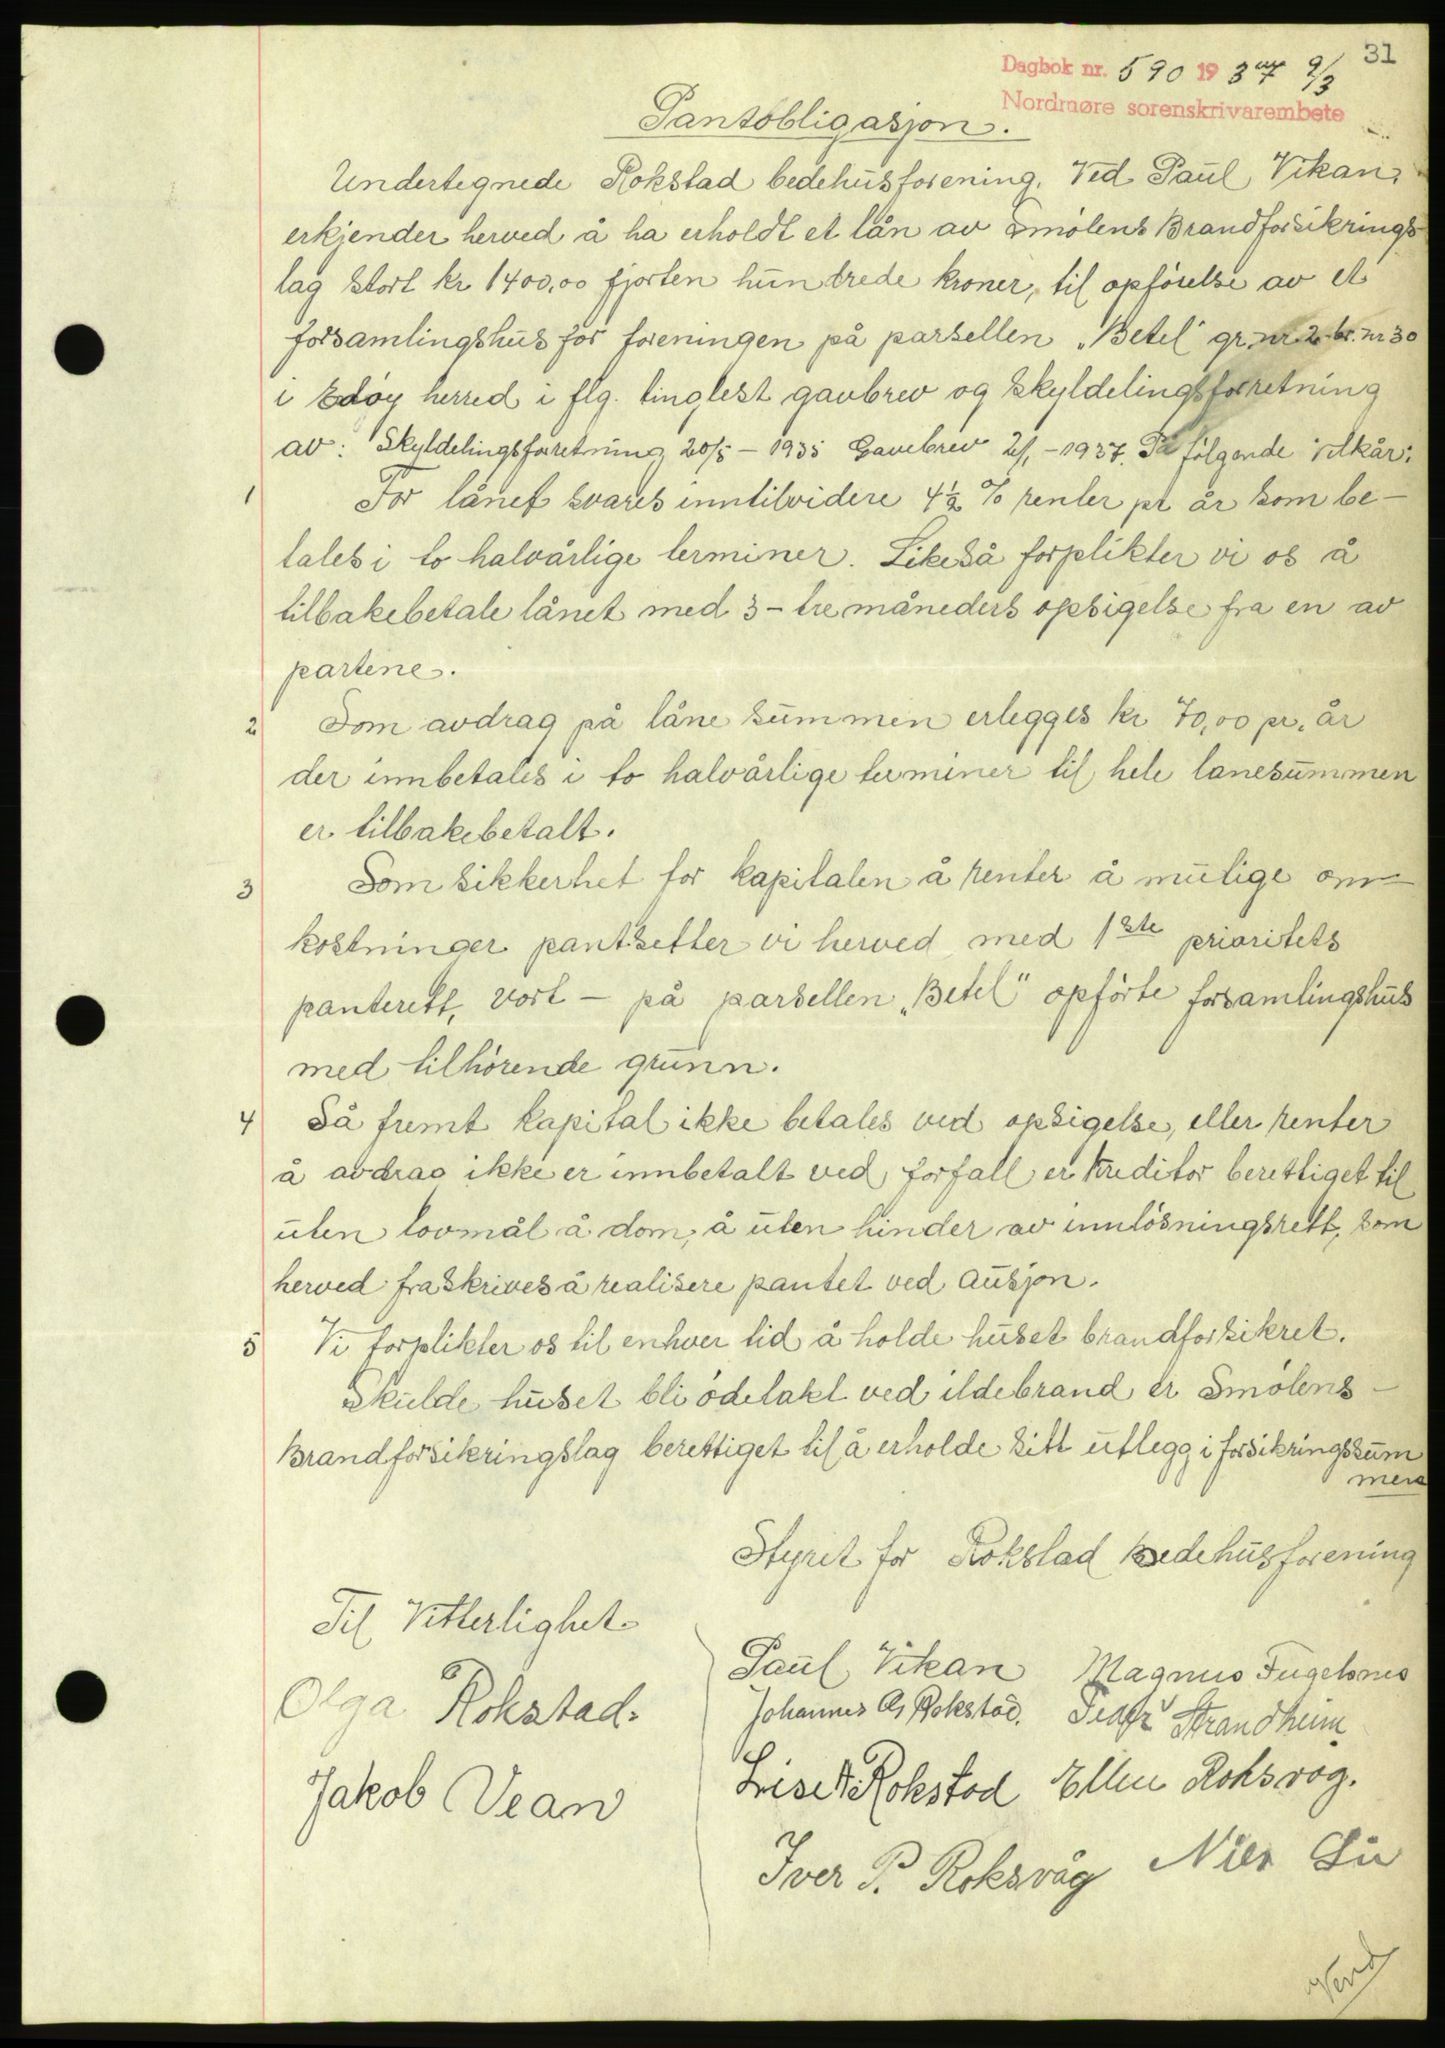 31
Dagbok nr. 590 1937 9/3
Nordmøre sorenskrivarembete
Pantobligasjon.
Undertegnede Rokstad bedehusforening. Ved Paul Vikan,
erkjender herved å ha erholdt et lån av Smølens Brandforsikrings-
lag stort kr 1400,00 fjorten hundrede kroner, til opførelse av et
forsamlingshus for foreningen på parsellen „Betel" gr.nr. 2 br. nr 30
i Edøy herred i flg. tinglest gavbrev og skyldelingsforretning
av: Skyldelingsforretning 20/5 - 1935 Gavebrev 2/1 - 1937. På følgende vilkår:
1 For lånet svares inntilvidere 4½ % renter pr år som be-
tales i to halvårlige terminer. Likeså forplikter vi os å
tilbakebetale lånet med 3 - tre måneders opsigelse fra en av
partene.
2 Som avdrag på låne summen erlegges kr 70,00 pr. år
der innbetales i to halvårlige terminer til hele lanesummen
er tilbakebetalt.
3 Som sikkerhet for kapitalen å renter å mulige om-
kostninger pantsetter vi herved med 1ste prioritets
panterett, vort - på parsellen „Betel" opførte forsamlingshus
med tilhørende grunn.
4 Så fremt kapital ikke betales ved opsigelse, eller renter
å avdrag ikke er innbetalt ved forfall er kreditor berettiget til
uten lovmål å dom, å uten hinder av innløsningsrett, som
herved fraskrives å realisere pantet ved ausjon.
5 Vi forplikter os til enhver tid å holde huset brandforsikret.
Skulde huset bli ødelakt ved ildebrand er Smølens -
Brandforsikringslag berettiget til å erholde sitt utlegg i forsikringssum
men
Styret for Rokstad bedehusforening
Til Vitterlighet.
Paul Vikan Magnus Fugelsnes
Olga Rokstad.
Johannes Rokstad. Peder Strandheim
Jakob Vean
Rokstad Ellen Roksvåg.
Iver P. Roksvåg Nils Lie
Vend